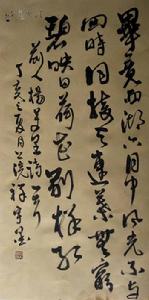 畢竟西湖六月中風光不与
四時同接天蓮葉無窮
碧映日荷花別樣紅
楊萬里詩
丁亥之夏月